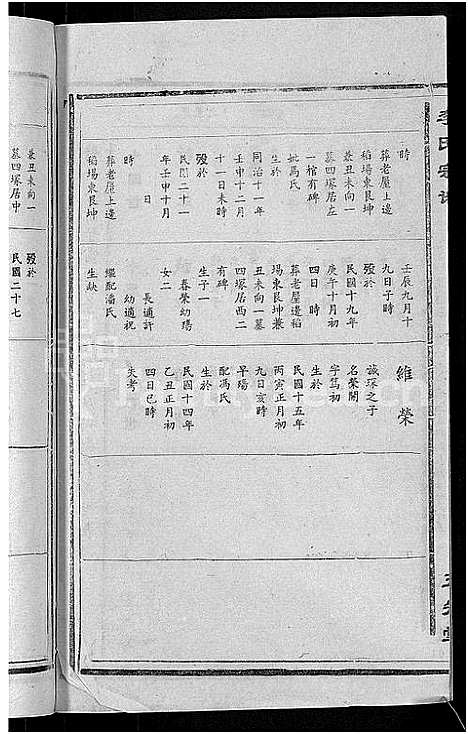 李氏宗譜
時
葬老屋上邊
稻場東艮坤
兼丑未向一
墓四塚居左
一棺有碑
妣馮氏
生於
同治十一年
壬申十二月
十一日未時
歿於
民國二十一
年壬申十月
日
時
葬老屋上邊
稻場東艮坤
壬辰九月十
九日子時
歿於
民國十九年
庚午十月初
四日 時
葬老屋邊稻
場東艮坤兼
丑未向一墓
四塚居西二
有碑
生子一
春榮幼殤
女二
長適許
幼適祝
繼配潘氏
生缺
維榮
誠琛之子
名榮開
字篤初
生於
民國十五年
丙寅正月初
九日亥時
早殤
配馮氏
生於
民國十四年
乙丑正月初
四日巳時
失考
兼丑未向一
墓四塚居中
歿於
民國二十七